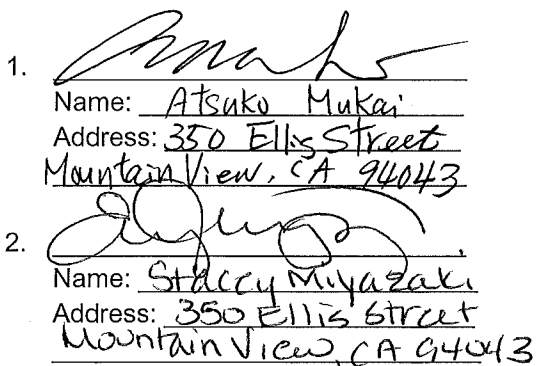 1.
Name: Atsuko Mukai
Address: 350 Ellis Street
Mountain View, CA 94043
2.
Name: Staccy Miyazaki
Address: 350 Ellis Street
Mountain View, CA 94043